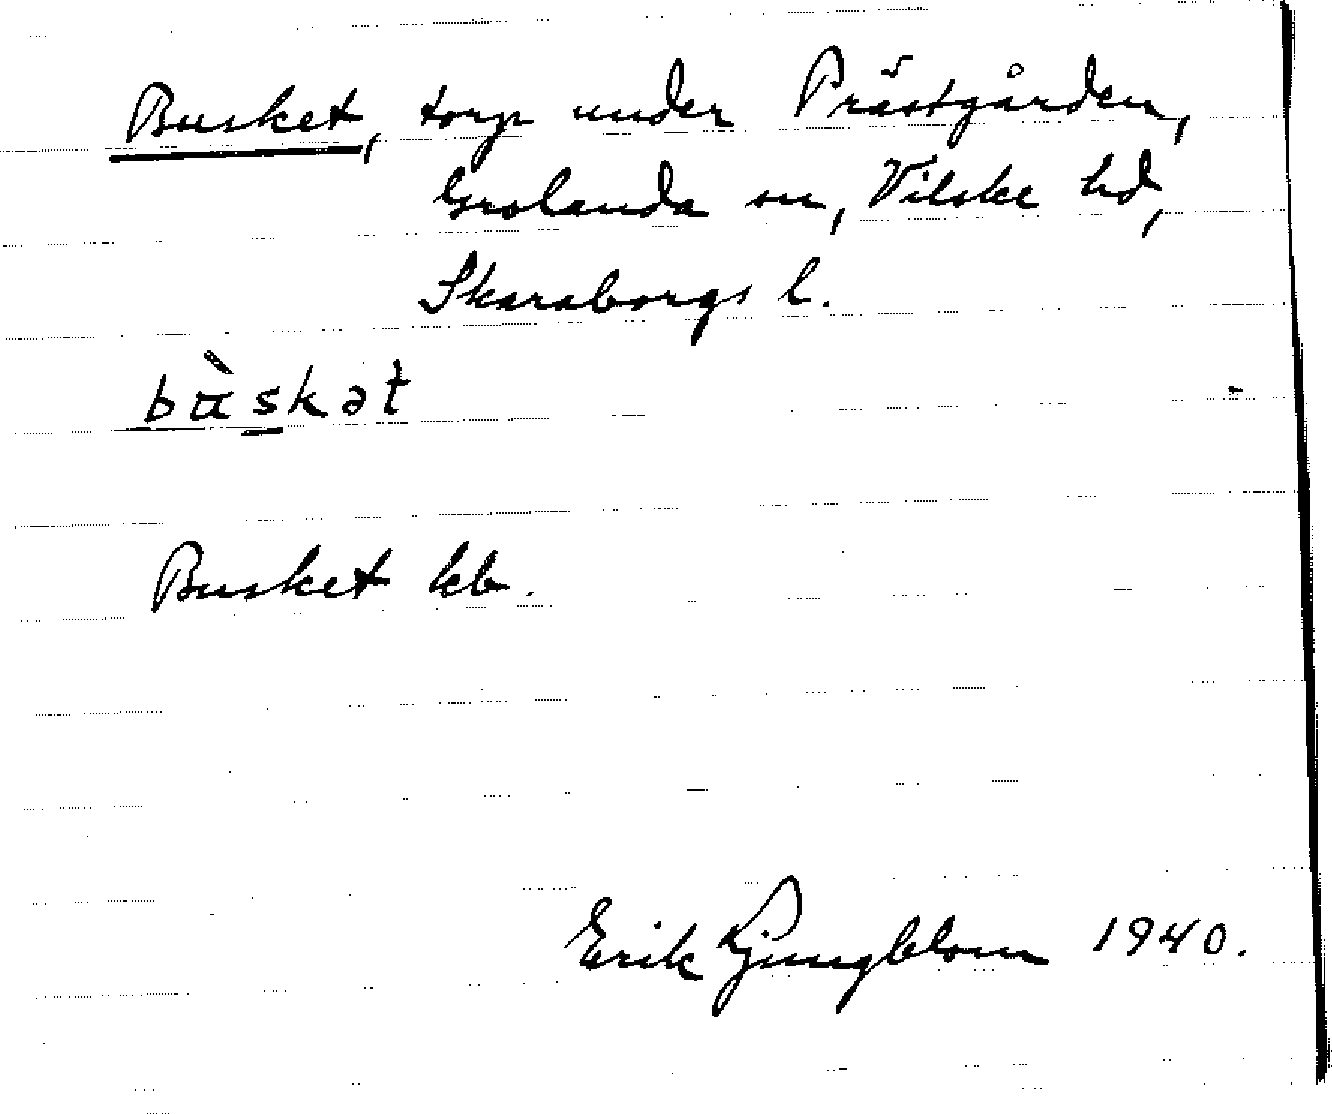 Busket, torp under Prästgården,
Grolanda sn, Vilske hd,
Skaraborgs l.
bɯ̀skət
Busket kb.
Erik Ljungblom 1940.